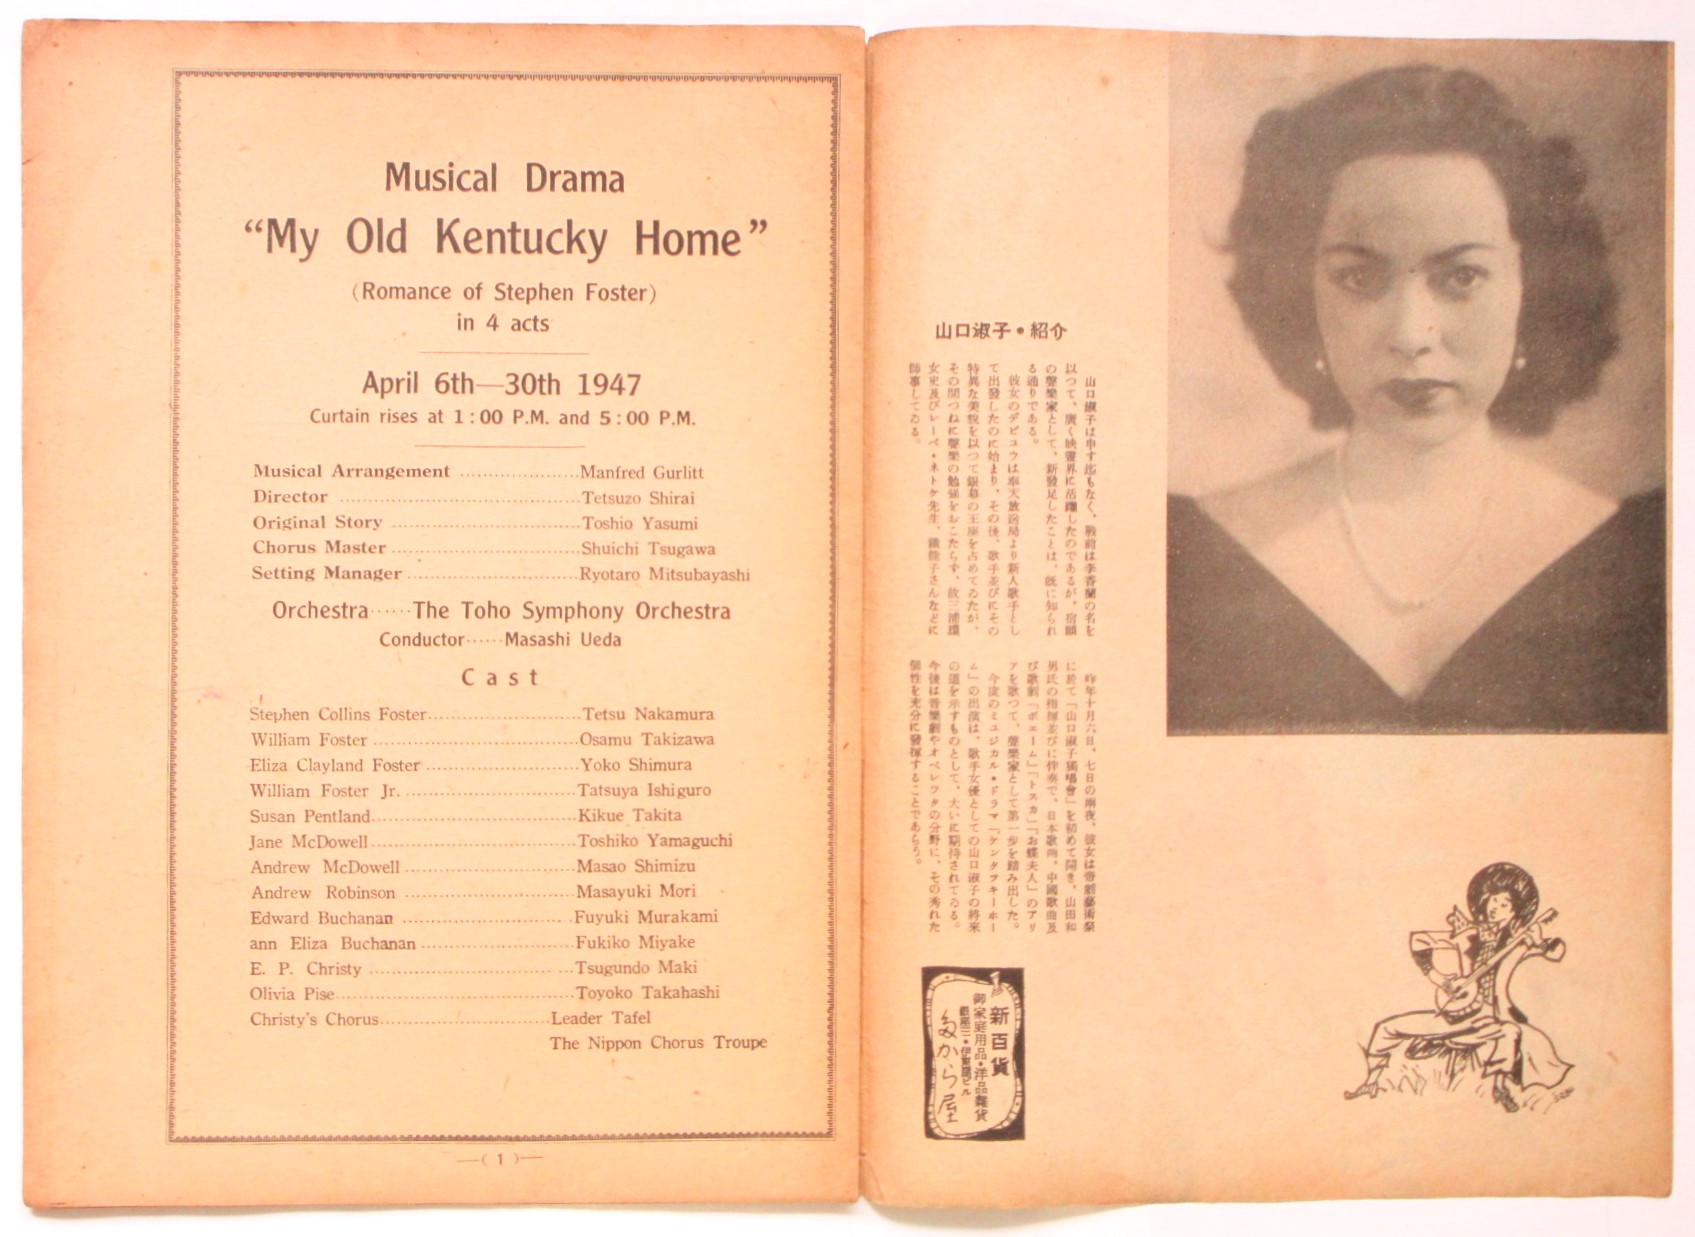 Musical Drama
“My Old Kentucky Home”
(Romance of Stephen Foster)
in 4 acts
April 6th—30th 1947
Curtain rises at 1:00 P.M. and 5:00 P.M.
Musical Arrangement ........................Manfred Gurlitt
Director ........................Tetsuzo Shirai
Original Story ........................Toshio Yasumi
Chorus Master ........................Shuichi Tsugawa
Setting Manager ........................Ryotaro Mitsubayashi
Orchestra······The Toho Symphony Orchestra
Conductor······Masashi Ueda
Cast
Stephen Collins Foster........................Tetsu Nakamura
William Foster ........................Osamu Takizawa
Eliza Clayland Foster ........................Yoko Shimura
William Foster Jr. ........................Tatsuya Ishiguro
Susan Pentland........................Kikue Takita
Jane McDowell........................Toshiko Yamaguchi
Andrew McDowell ........................Masao Shimizu
Andrew Robinson ........................Masayuki Mori
Edward Buchanan ........................Fuyuki Murakami
ann Eliza Buchanan ........................Fukiko Miyake
E. P. Christy ........................Tsugundo Maki
Olivia Pise........................Toyoko Takahashi
Christy's Chorus........................Leader Tafel
The Nippon Chorus Troupe
—( 1 )—
山口淑子・紹介
山口淑子は申す迄もなく、戰前は李香蘭の名を
以つて、廣く映畫界に活躍したのであるが、宿願
の聲樂家として、新發足したことは、既に知られ
る通りである。
彼女のデビュウは奉天放送局より新人歌手とし
て出發したのに始まり、その後、歌手並びにその
特異な美貌を以つて銀幕の王座を占めてゐたが、
その間つねに聲樂の勉強をおこたらず、故三浦環
女史及びレーベ・ネトケ先生、さんなどに
師事してゐる。
昨年十月六日、七日の兩夜、彼女は帝劇藝術祭
に於て「山口淑子獨唱會」を初めて開き、山田和
男氏の指揮並びに伴奏で、日本歌曲、中國歌曲及
び歌劇「ボエーム」「トスカ」「お蝶夫人」のアリ
アを歌つて、聲樂家として第一步を踏み出した。
今度のミュジカル・ドラマ「ケンタツキーホー
ム」の出演は、歌手女優としての山口淑子の將來
の道を示すものとして、大いに期待されてゐる。
今後は音樂劇やオペレツタの分野に、その秀れた
個性を充分に發揮することであらう。
新百貨
御家庭用品・洋品雜貨
銀座三・伊東屋ビル
たから屋